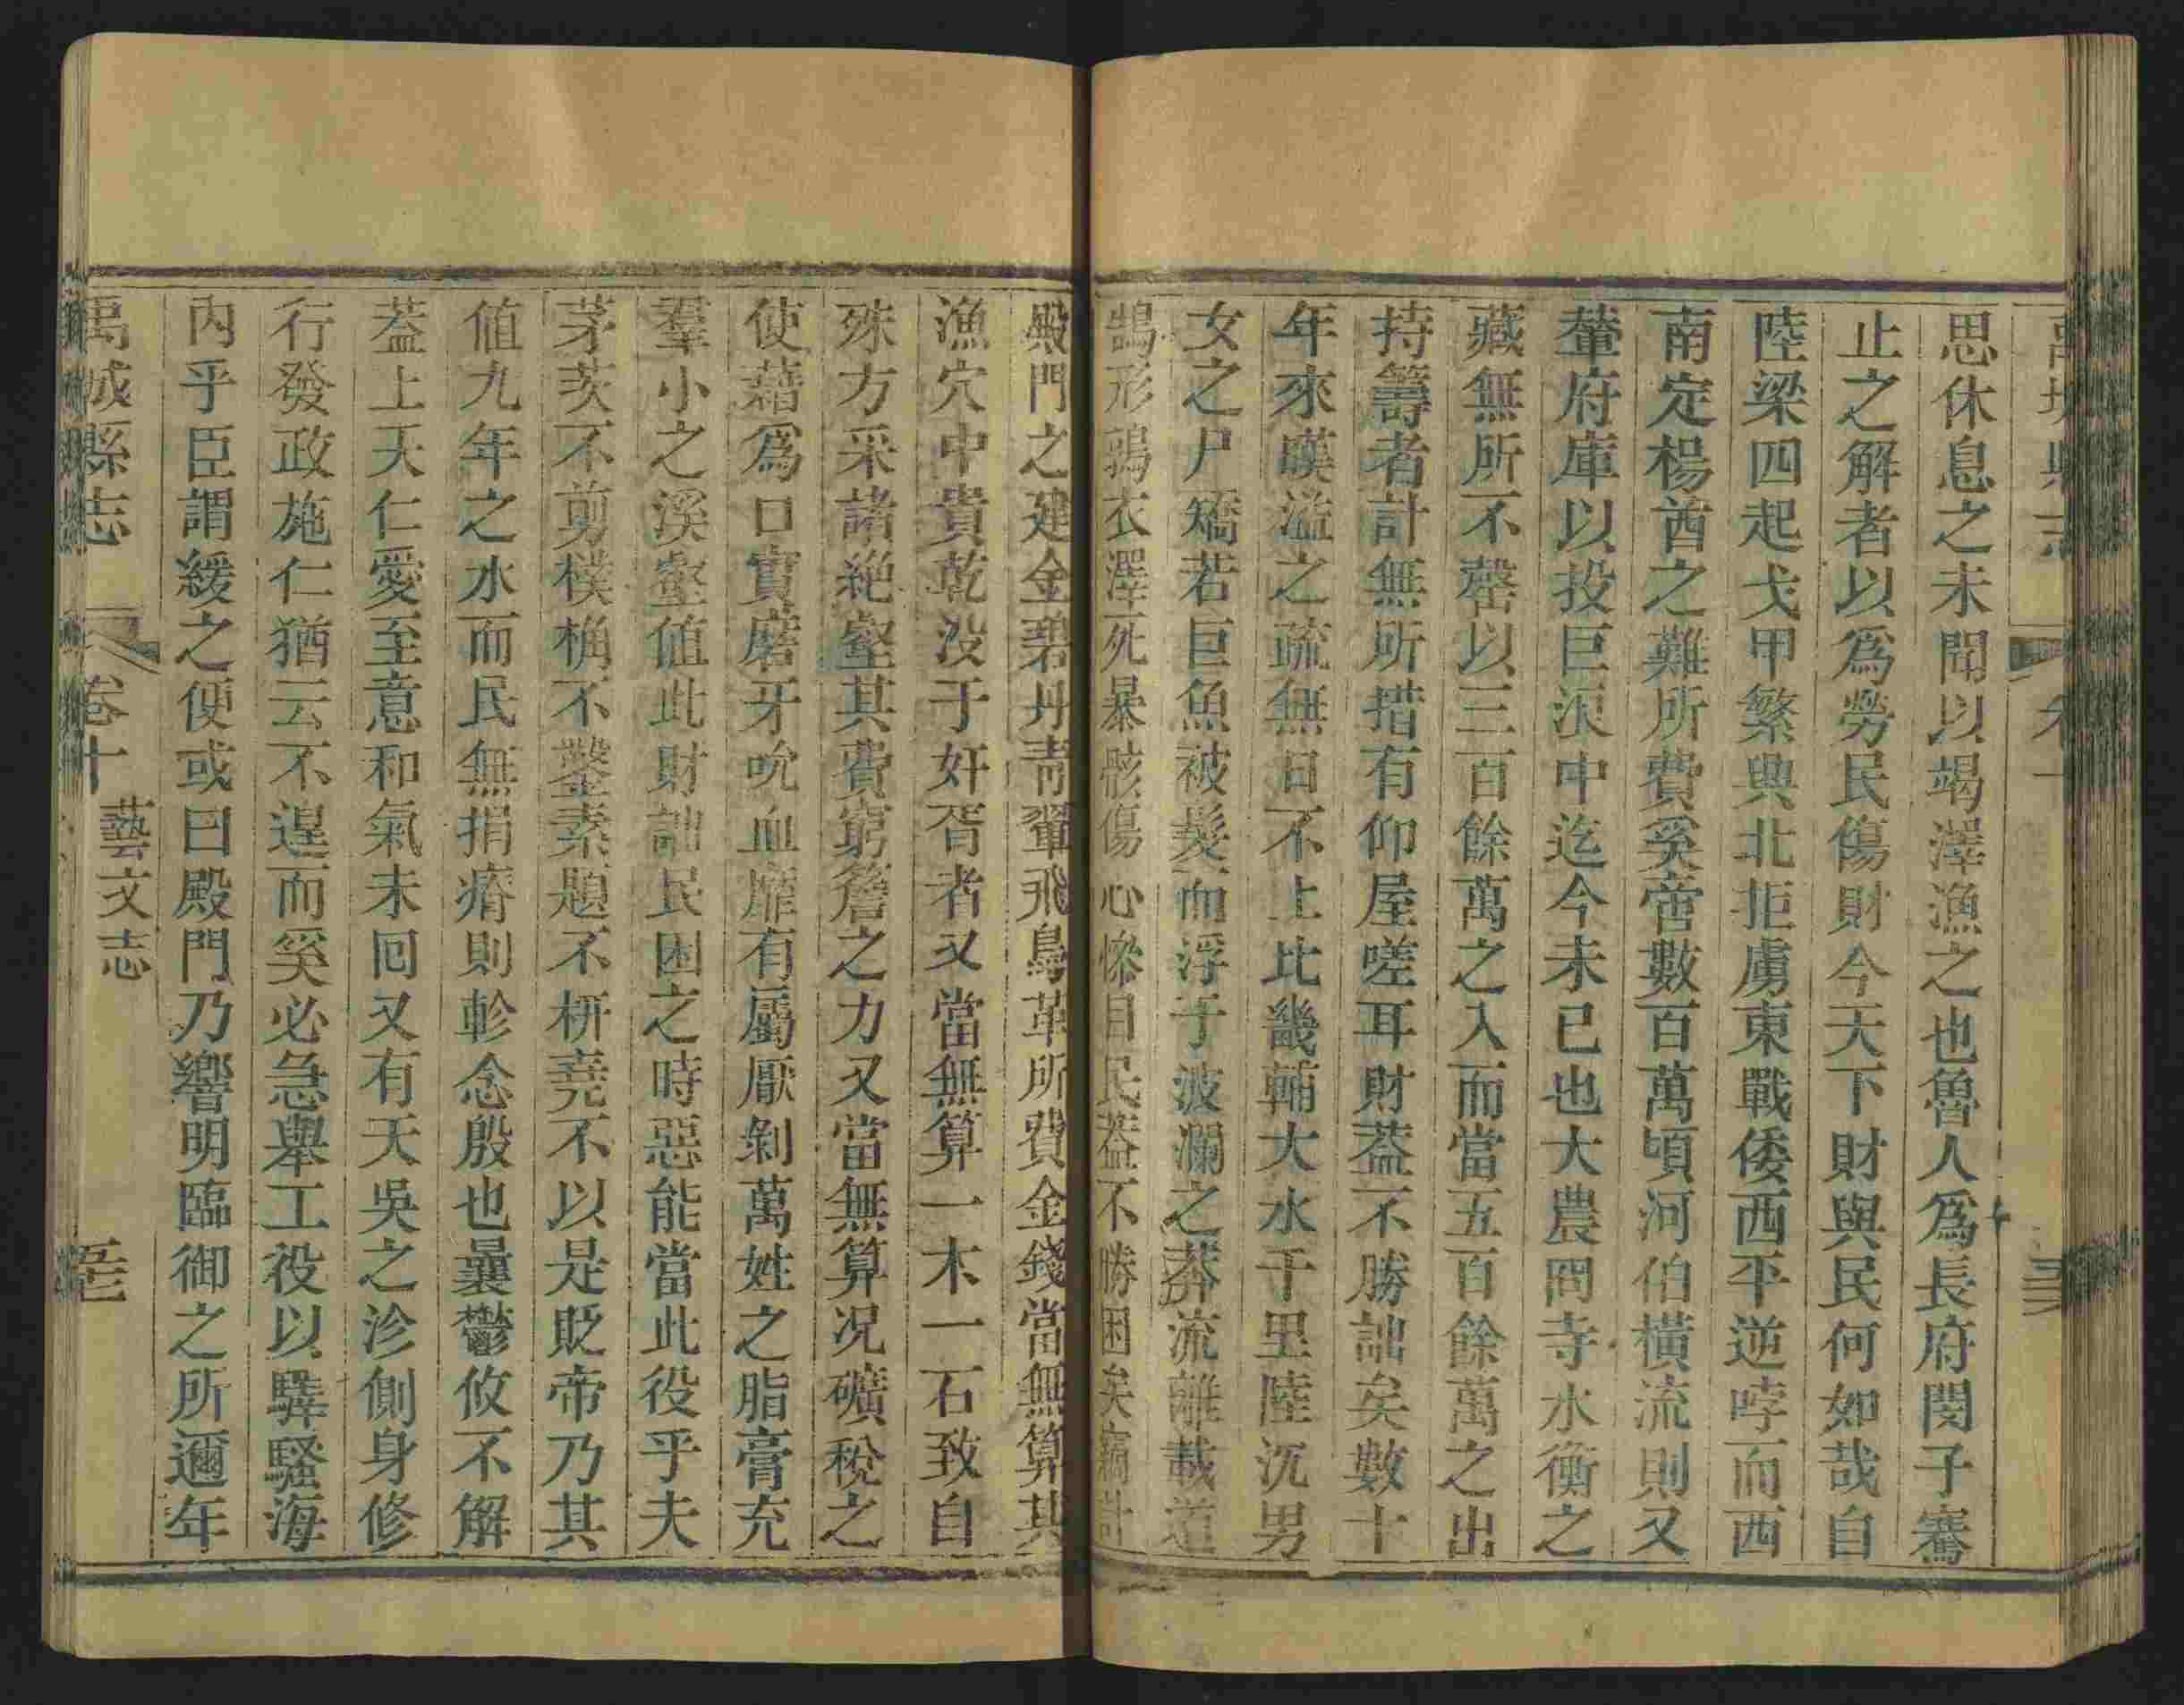 思休息之未聞以竭澤漁之也魯人為長府閔子騫
止之解者以爲勞民傷財今天下財與民何如哉自
陸梁四起戈甲繁興北拒虜東戰倭西平逆哱而西
南定楊酋之難所費奚啻數百萬頃河伯橫流則又
輦府庫以投巨浪中迄今未已也大農冏寺水衡之
藏無所不罄以三百餘萬之入而當五百餘萬之出
持籌者計無所措有仰屋嗟耳財葢不勝詘矣數十
年來暵溢之疏無日不上比畿輔大水千里陸沉男
女之尸矯若巨魚被髮而浮于波瀾之莽流離載道
鵠形鶉衣澤死暴骸傷心慘目民葢不勝困矣竊計
殿門之建金碧丹青翬飛鳥革所費金錢當無算其
漁穴中貴乾没于奸胥者又當無算一木一石致自
殊方采諸絶壑其費窮簷之力又當無算况礦稅之
使藉爲口實磨牙吮血靡有屬厭剝萬姓之脂膏充
羣小之溪壑值此財詘民困之時惡能當此役乎夫
茅茨不剪樸桷不鑿素題不枅堯不以是貶帝乃其
值九年之水而民無捐瘠則軫念殷也曩鬱攸不解
葢上天仁愛至意和氣未回又有天吳之沴側身修
行發政施仁猶云不遑而奚必急舉工役以驛騷海
內乎臣謂緩之便或曰殿門乃嚮明臨御之所邇年
禹城縣志 卷十 藝文志